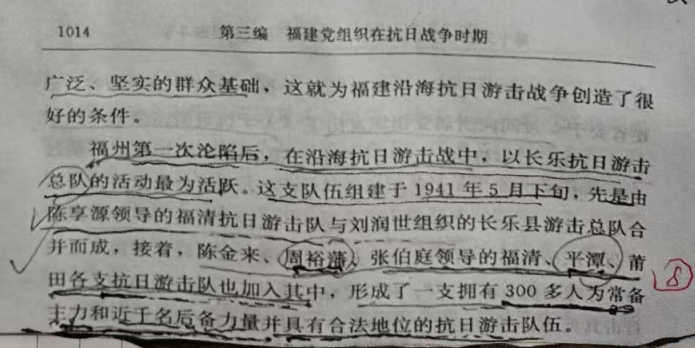 1014 第三编 福建党组织在抗日战争时期
广泛、坚实的群众基础，这就为福建沿海抗日游击战争创造了很
好的条件。
福州第一次沦陷后，在沿海抗日游击战中，以长乐抗日游击
总队的活动最为活跃。这支队伍组建于1941年5月下旬，先是由
陈亨源领导的福清抗日游击队与刘润世组织的长乐县游击总队合
并而成，接着，陈金来、周裕藩、张伯庭领导的福清、平潭、莆
田各支抗日游击队也加入其中，形成了一支拥有300多人为常备
主力和近千名后备力量并具有合法地位的抗日游击队伍。
8